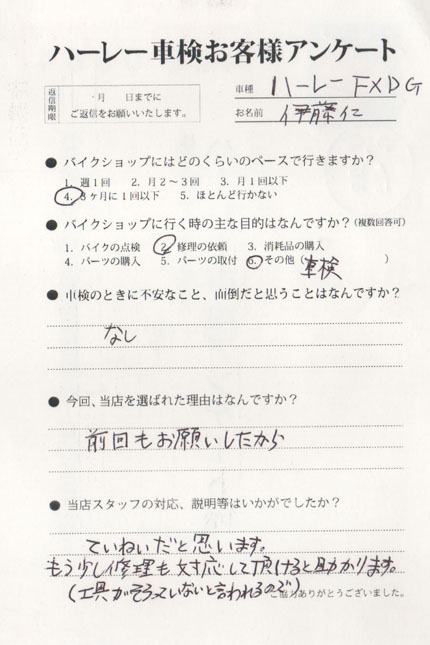 ハーレー車検お客様アンケート
返信期限
月 日までに
ご返信をお願いいたします。
車種 ハーレー FXDG
お名前 伊藤仁
● バイクショップにはどのくらいのペースで行きますか？
1. 週1回 2. 月2～3回 3. 月1回以下
4. 3ヶ月に1回以下 5. ほとんど行かない
● バイクショップに行く時の主な目的はなんですか？(複数回答可)
1. バイクの点検 2. 修理の依頼 3. 消耗品の購入
4. パーツの購入 5. パーツの取付 6. その他（車検 ）
● 車検のときに不安なこと、面倒だと思うことはなんですか？
なし
● 今回、当店を選ばれた理由はなんですか？
前回もお願いしたから
● 当店スタッフの対応、説明等はいかがでしたか？
ていねいだと思います。
もう少し修理も対応して頂けると助かります。
(工具がそろっていないと言われるので)
ご協力ありがとうございました。